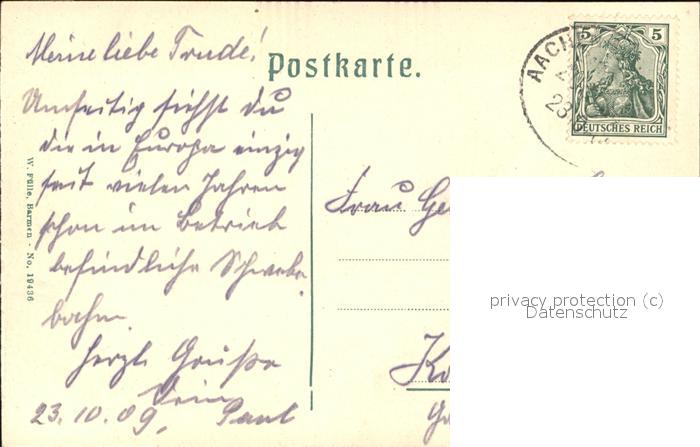 Postkarte.
Meine liebe Trude!
Umseitig siehst Du
die in Europa einzig
seit vielen Jahren
schon im Betrieb
befindliche Schwebe-
bahn.
Herzl. Grüße
Dein
23.10.09. Paul
W. Fülle, Barmen - No. 19436
AACH
23
5 5
DEUTSCHES REICH
Frau Ge
privacy protection (c)
Datenschutz